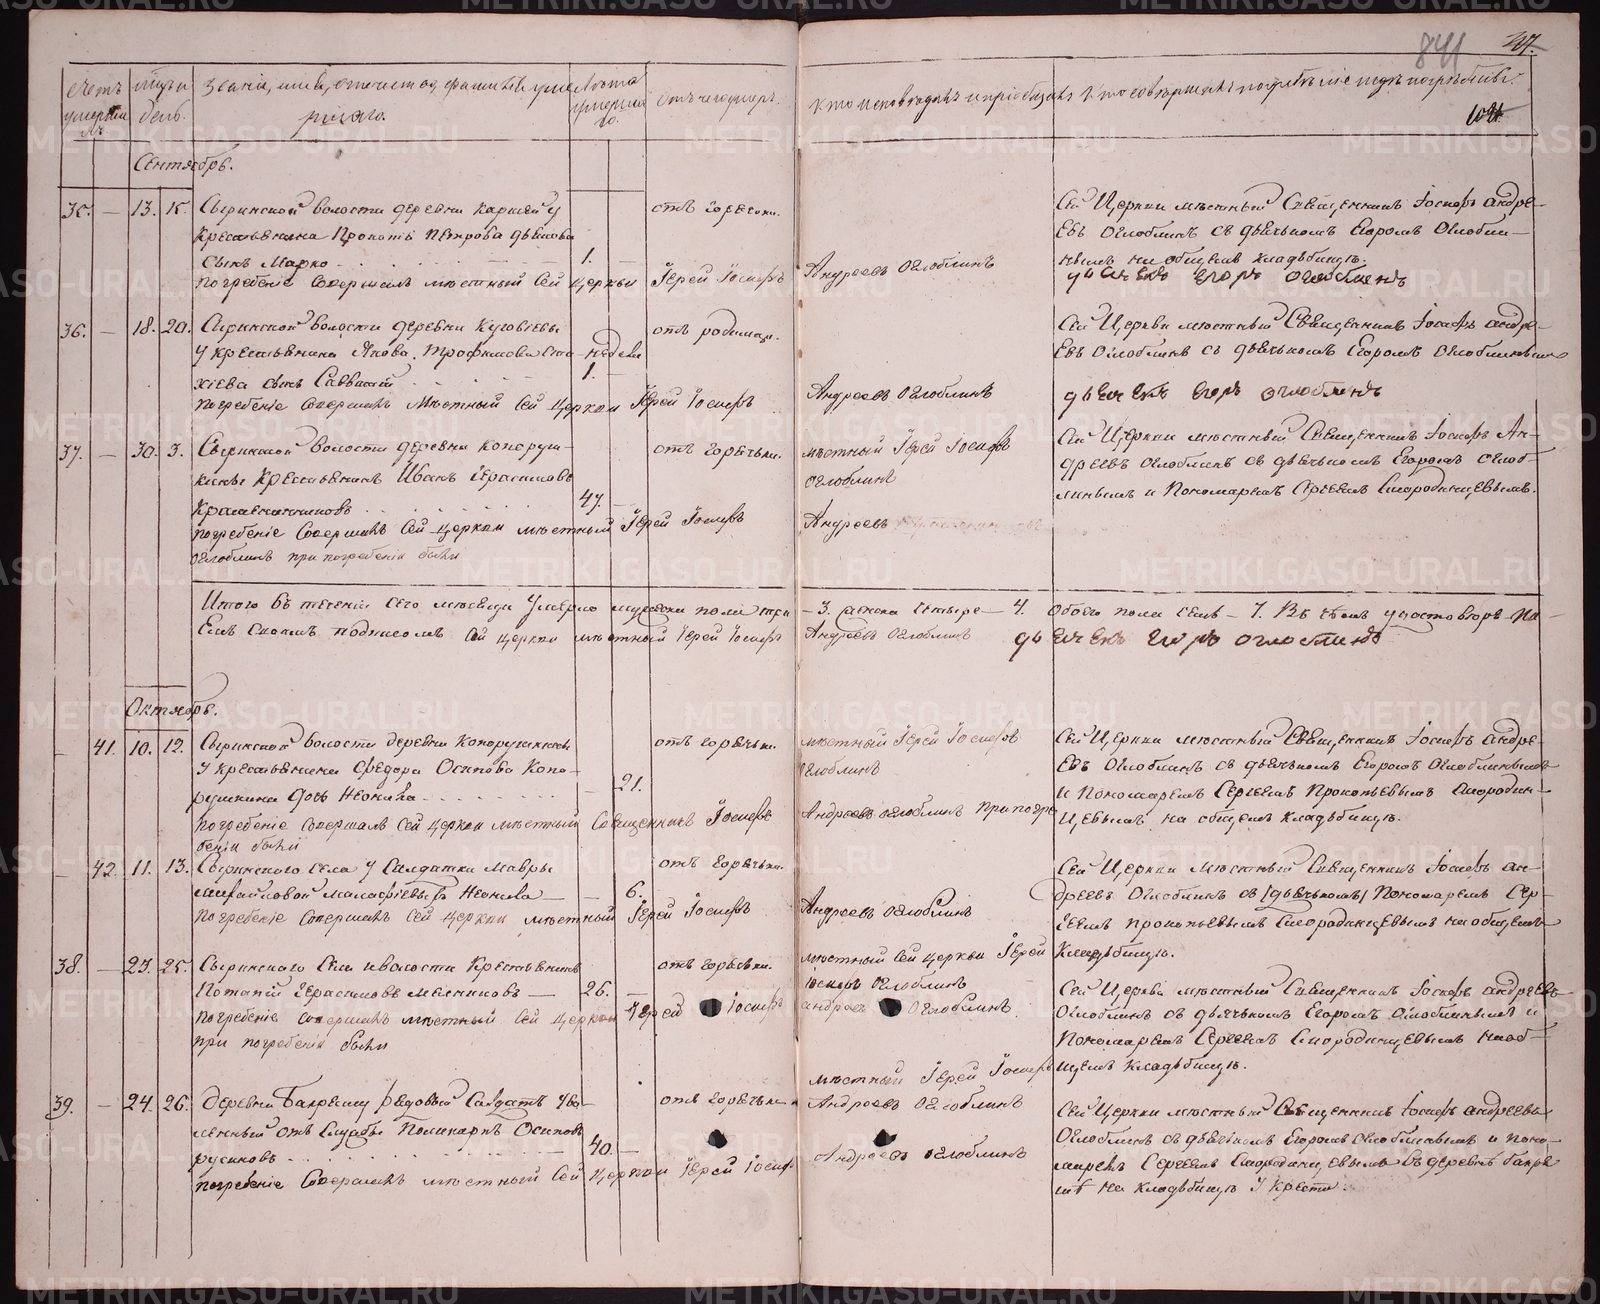 841 47.
Счетъ умершихъ
Мѣсяцъ и день.
Званіе, имя, отчество фамилія умершаго.
Лѣта умершаго.
Отъ чего умеръ.
Кто исповѣдалъ и пріобщалъ
Кто совершалъ погребеніе и гдѣ погребены.
Сентябрь.
35. — 13. 15. Сыринской волости деревни
крестьянина Прокопія Петрова
сынъ Марко 1. отъ горячки.
погребеніе совершалъ мѣстный сей церкви Іерей Іосифъ Андреевъ Оглоблинъ
Сей Церкви мѣстный Священникъ Іосифъ Андре-
евъ Оглоблинъ съ дьячькомъ Егоромъ Оглобли-
нымъ на общемъ кладьбищѣ.
дьячекъ Егоръ Оглоблинъ
36. — 18. 20. Сыринской волости деревни
у крестьянина Якова Трофимова недели отъ родимца.
сынъ Савватій 1.
погребеніе совершалъ Мѣстный сей церкви Іерей Іосифъ Андреевъ Оглоблинъ
Сей Церкви мѣстный Священникъ Іосифъ Андре-
евъ Оглоблинъ съ дьячькомъ Егоромъ Оглоблинымъ
дьячекъ Егоръ Оглоблинъ
37. — 30. 3. Сыринской волости деревни Копоруш-
кины Крестьянинъ Иванъ Герасимовъ
47. отъ горячьки.
мѣстный Іерей Іосифъ
Оглоблинъ
погребеніе совершалъ сей церкви мѣстный Іерей Іосифъ Андреевъ
Оглоблинъ при погребеніи были
Сей Церкви мѣстный Священникъ Іосифъ Ан-
дреевъ Оглоблинъ съ дьячькомъ Егоромъ Оглоб-
линымъ и Пономаремъ Сергеемъ Смородинцевымъ.
Итого въ теченіи сего месяца Умерло мужеска пола три — 3. женска четыре — 4. обоего пола семь — 7. Въ чемъ удостовѣре-
сей церкви мѣстный Іерей Іосифъ Андреевъ Оглоблинъ дьячекъ Егоръ Оглоблинъ
Октябрь.
41. 10. 12. Сыринской волости деревни Копорушкины
У крестьянина Федора Осипова Копо-
рушкина дочь Неонила 21. отъ горячьки.
мѣстный Іерей Іосифъ
Оглоблинъ
погребеніе совершалъ сей церкви мѣстный Священникъ Іосифъ Андреевъ Оглоблинъ при погре-
беніи были
Сей Церкви мѣстный Священникъ Іосифъ Андре-
евъ Оглоблинъ съ дьячькомъ Егоромъ Оглоблинымъ
и Пономаремъ Сергеемъ Прокопьевымъ Смородин-
цевымъ на общемъ кладьбищѣ.
42. 11. 13. Сыринского села У Салдатки Мавры
Михайловой Неонила 6. отъ горячьки.
погребеніе совершалъ сей церкви мѣстный Іерей Іосифъ Андреевъ Оглоблинъ
Сей Церкви мѣстный Священникъ Іосифъ Ан-
дреевъ Оглоблинъ съ /дьячькомъ/ Пономаремъ Сер-
геемъ Прокопьевымъ Смородинцевымъ на общемъ
кладьбищѣ.
38. — 23. 25. Сыринского села и волости Крестьянинъ
Потапій Герасимовъ Мельниковъ 26. отъ горячьки.
мѣстный сей церкви Іерей
Іосифъ Оглоблинъ
погребеніе совершалъ мѣстный сей церкви Іерей Іосифъ Андреевъ Оглоблинъ
при погребеніи были
Сей Церкви мѣстный Священникъ Іосифъ Андреевъ
Оглоблинъ съ дьячькомъ Егоромъ Оглоблинымъ и
Пономаремъ Сергеемъ Смородинцевымъ на об-
щемъ кладьбищѣ.
39. — 24. 26. Деревни рядовый Салдатъ Уво-
ленный отъ службы Поликарпъ Осиповъ
Русиновъ 40. отъ горячьки
мѣстный Іерей Іосифъ
Андреевъ Оглоблинъ
погребеніе совершалъ мѣстный сей церкви Іерей Іосифъ Андреевъ Оглоблинъ
Сей Церкви мѣстный Священникъ Іосифъ Андреевъ
Оглоблинъ съ дьячькомъ Егоромъ Оглоблинымъ и поно-
маремъ Сергеемъ Смородинцевымъ въ деревнѣ
на кладьбищѣ У Креста.
METRIKI.GASO-URAL.RU